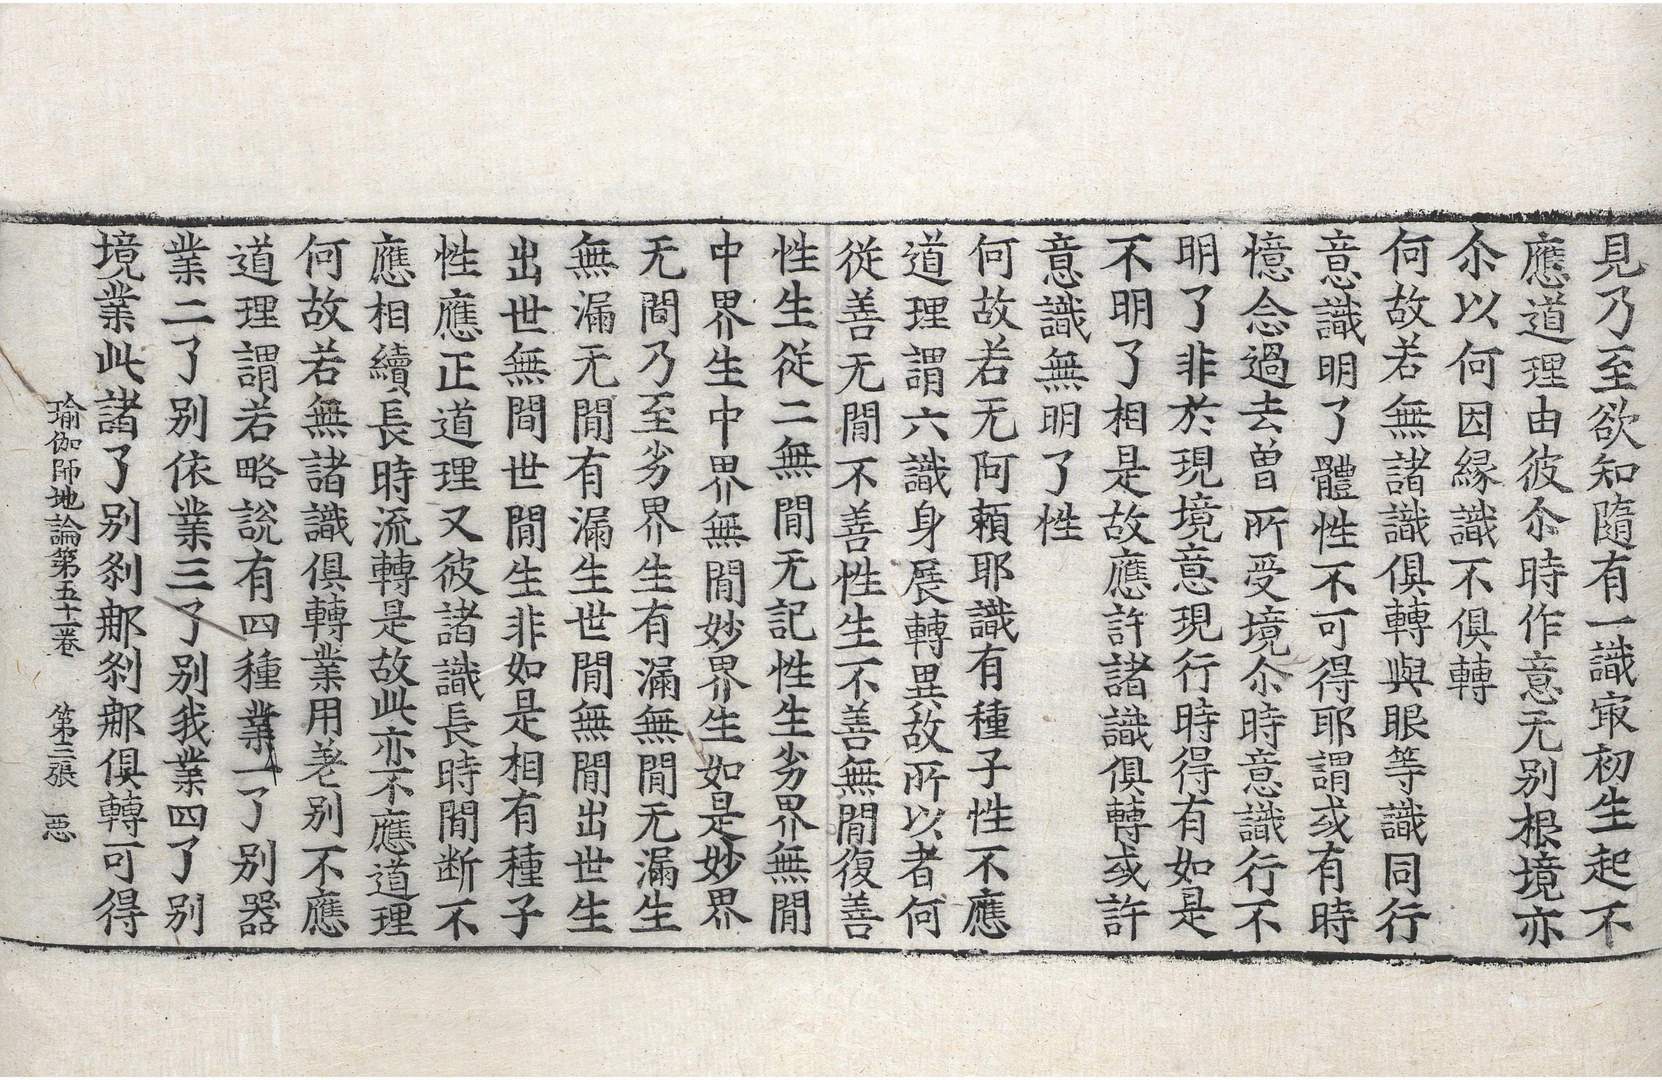 見乃至欲知隨有一識㝡初生起不
應道理由彼尒時作意无別根境亦
尒以何因緣識不俱轉
何故若無諸識俱轉與眼等識同行
意識明了體性不可得耶謂或有時
憶念過去曾所受境尒時意識行不
明了非於現境意現行時得有如是
不明了相是故應許諸識俱轉或許
意識無明了性
何故若无阿賴耶識有種子性不應
道理謂六識身展轉異故所以者何
從善无間不善性生不善無間復善
性生從二無間无記性生劣界無間
中界生中界無間妙界生如是妙界
无間乃至劣界生有漏無間无漏生
無漏无間有漏生世間無間出世生
出世無間世間生非如是相有種子
性應正道理又彼諸識長時間断不
應相續長時流轉是故此亦不應道理
何故若無諸識俱轉業用差别不應
道理謂若略說有四種業一了別器
業二了別依業三了別我業四了別
境業此諸了別刹那刹那俱轉可得
瑜伽師地論第五十一卷 第三張 惡